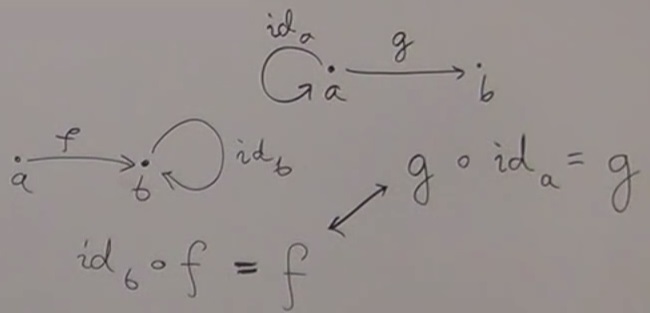 id_a
g
a
b
f
a
b
id_b
g ∘ id_a = g
id_b ∘ f = f